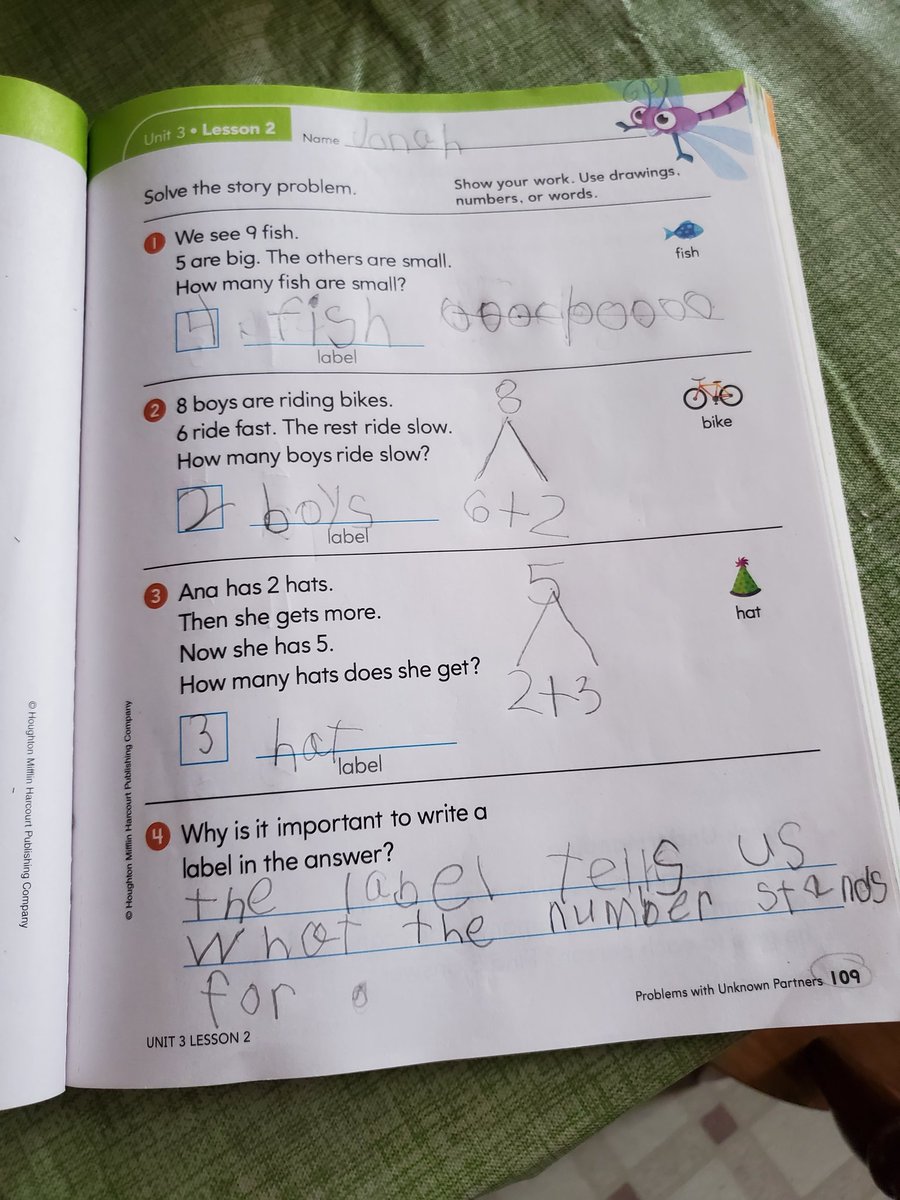 Unit 3 • Lesson 2
Name Jonah
Solve the story problem.
Show your work. Use drawings,
numbers, or words.
1 We see 9 fish.
5 are big. The others are small.
How many fish are small?
fish
4 fish
label
2 8 boys are riding bikes.
6 ride fast. The rest ride slow.
How many boys ride slow?
bike
8
6+2
2 boys
label
3 Ana has 2 hats.
Then she gets more.
Now she has 5.
How many hats does she get?
hat
5
2+3
3 hat
label
4 Why is it important to write a
label in the answer?
the label tells us
what the number stands
for
Problems with Unknown Partners 109
UNIT 3 LESSON 2
© Houghton Mifflin Harcourt Publishing Company
© Houghton Mifflin Harcourt Publishing Company